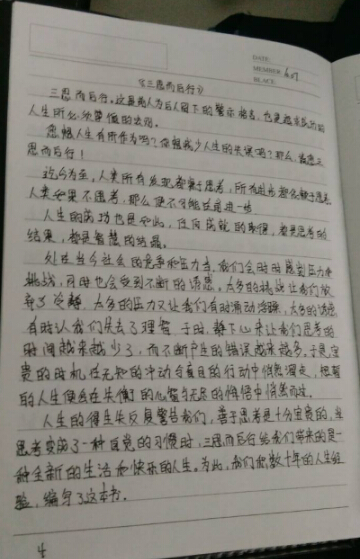 DATE:
MEMBER: 607
PLACE:
《三思而后行》
三思而后行，这是前人为后人留下的警示格言，也是超越民族的
人生所必须掌握的法则。
您想人生有所作为吗？您想减少人生的失误吗？那么，请您三
思而后行！
迄今为至，人类所有发现都基于思考，所有进步都依赖于思考
人类如果不思考，那么便不可能在前进一步
人生的成功也是如此，任何成就的取得，都是思考的
结果，都是智慧的结晶。
处在当今社会的竞争和压力当，我们会时时感到压力和
挑战，同时也会受到不断的诱惑。太多的挑战让我们放
弃了安静，太多的压力又让我们有时滑动浮躁，太多的诱惑
有时认我们失去了理智 于时，静下心来让我们思考的
时间越来越少了，而不断产生的错误越来越多。于是，宝
贵的时机在无知的冲动与盲目的行动中悄然溜走，想要
的人生便会在失衡的心智与无尽的悔悟中悄然而过。
人生的得失反复警告我们，善于思考是十分宝贵的，当
思考变成了一种自觉的习惯时，三思而后行给我们带来的是一
种全新的生活和快乐的人生。为此，我们把数十年的人生经
验，编写了这本书。
4